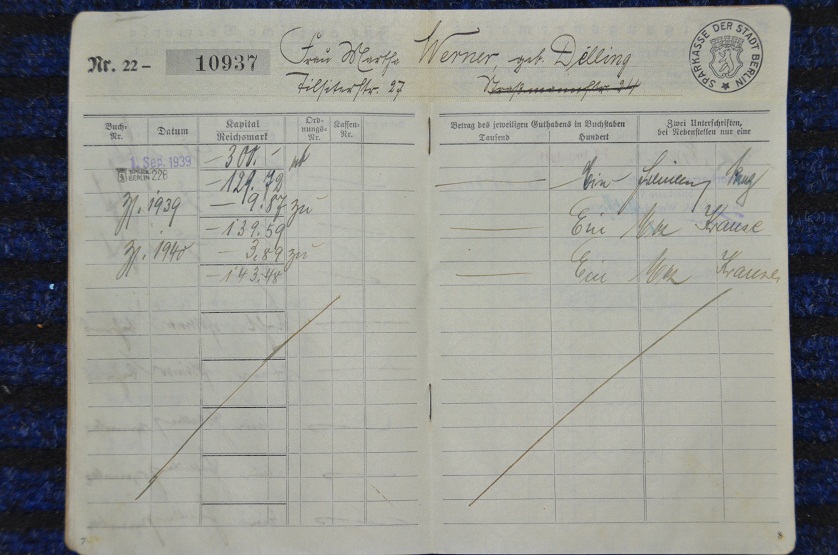 Nr. 22 – 10937 Frau Martha Werner, geb. Délling
Tilsiterstr. 27 Straßmannstr. 24
SPARKASSE DER STADT BERLIN
Buch-Nr. Datum Kapital Reichsmark Ord-nungs-Nr. Kassen-Nr.
Betrag des jeweiligen Guthabens in Buchstaben Tausend Hundert
Zwei Unterschriften, bei Nebenstellen nur eine
1. Sep. 1939 – 300. –
BERLIN 226 – 129.72 Ein
Zf. 1939 – 9.87 zu
– 139.59 Ein Krause
Zf. 1940 – 3.89 zu
– 143.48 Ein Krause
7
8